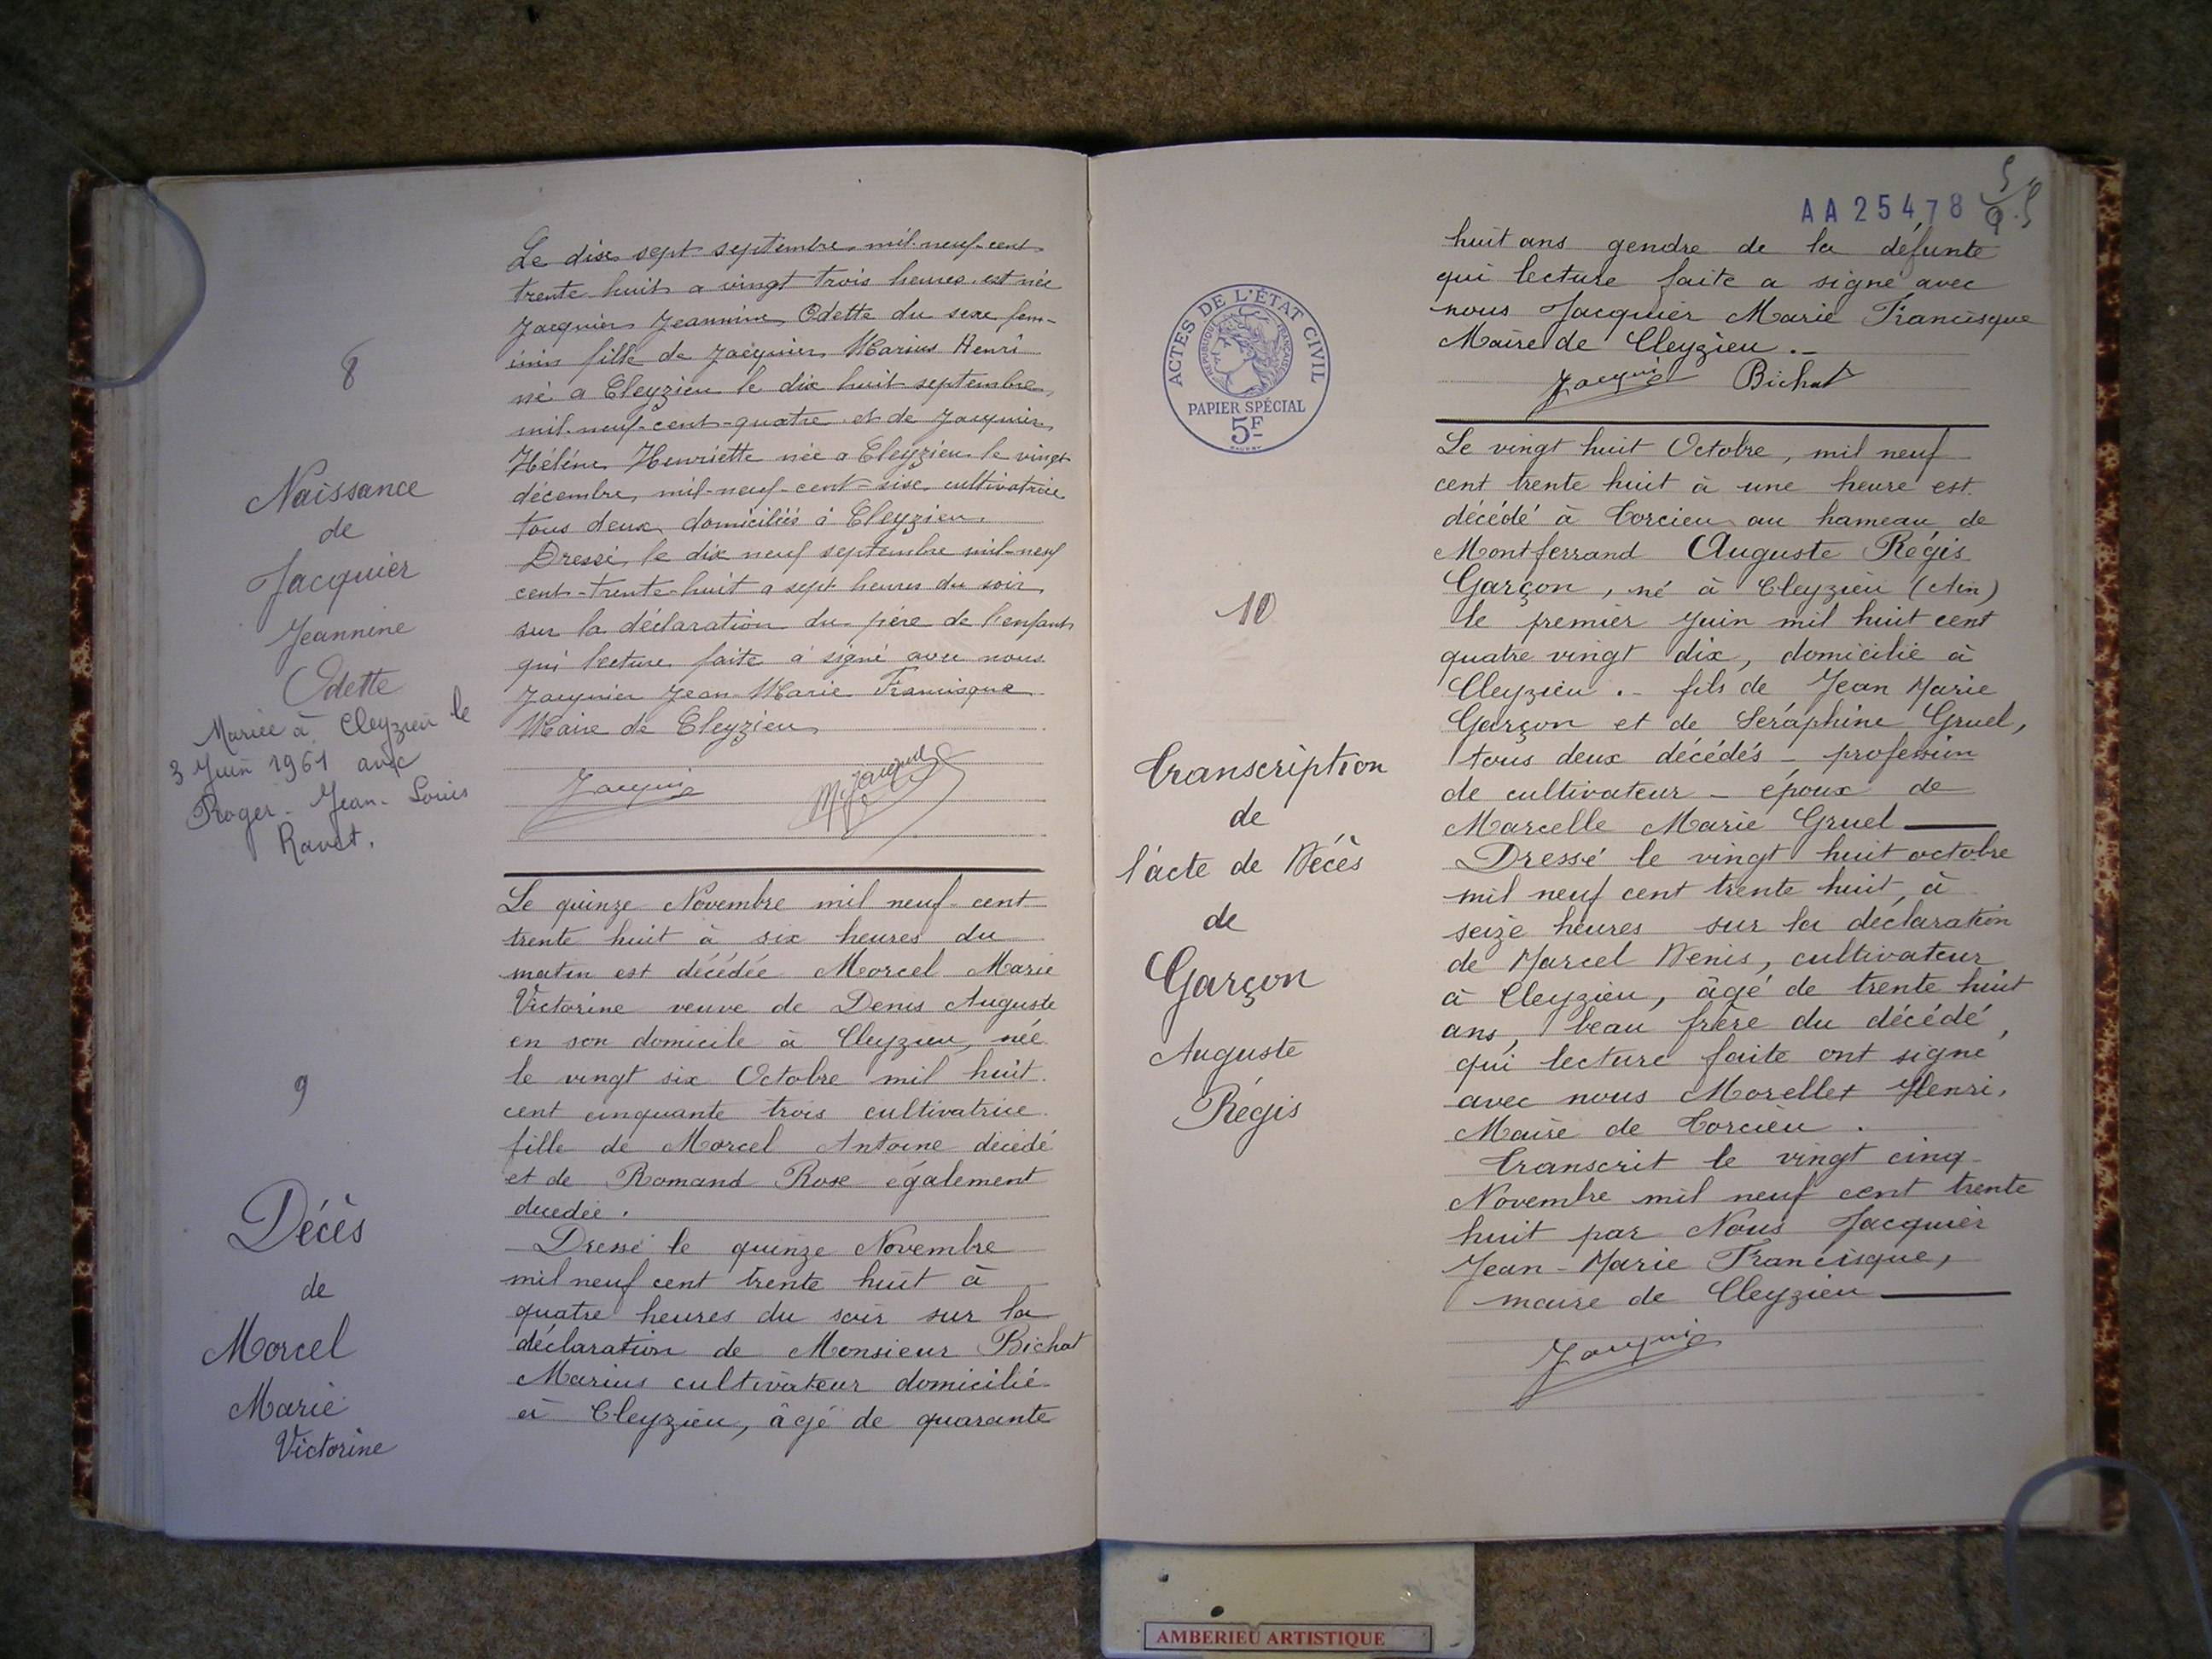 8
Naissance
de
Jacquier
Jeannine
Odette
Mariée à Cleyzieu le
3 Juin 1961 avec
Roger - Jean - Louis
Le dix sept septembre mil-neuf-cent
trente huit a vingt trois heures est née
Jacquier Jeannine Odette du sexe fem-
inin fille de Jacquier Marius Henri
né a Cleyzieu le dix huit septembre
mil-neuf-cent-quatre et de Jacquier
Hélène Henriette née a Cleyzieu le vingt
décembre mil-neuf-cent-six cultivatrice
tous deux domiciliés à Cleyzieu.
Dressé le dix neuf septembre mil-neuf
cent-trente-huit a sept heures du soir
sur la déclaration du père de l'enfant
qui lecture faite a signé avec nous
Jacquier Jean Marie Francisque
Maire de Cleyzieu
Jacquier M Jacquier
9
Décès
de
Morcel
Marie
Victorine
Le quinze Novembre mil neuf-cent
trente huit à six heures du
matin est décédée Morcel Marie
Victorine veuve de Denis Auguste
en son domicile à Cleyzieu, née
le vingt six Octobre mil huit
cent cinquante trois cultivatrice
fille de Morcel Antoine décédé
et de Romand Rose également
décédée.
Dressé le quinze Novembre
mil neuf cent trente huit à
quatre heures du soir sur la
déclaration de Monsieur Bichat
Marius cultivateur domicilié
à Cleyzieu, âgé de quarante
AA25478
ACTES DE L'ÉTAT CIVIL
RÉPUBLIQUE FRANÇAISE
PAPIER SPÉCIAL
5F
huit ans gendre de la défunte
qui lecture faite a signé avec
nous Jacquier Marie Francisque
Maire de Cleyzieu.-
Jacquier Bichat
10
Transcription
de
l'acte de Décès
de
Garçon
Auguste
Régis
Le vingt huit Octobre, mil neuf
cent trente huit à une heure est
décédé à Torcieu au hameau de
Montferrand Auguste Régis
Garçon, né à Cleyzieu (Ain)
le premier Juin mil huit cent
quatre vingt dix, domicilié à
Cleyzieu.- fils de Jean Marie
Garçon et de Séraphine Gruel,
tous deux décédés - profession
de cultivateur - époux de
Marcelle Marie Gruel
Dressé le vingt huit octobre
mil neuf cent trente huit, à
seize heures sur la déclaration
de Marcel Denis, cultivateur
à Cleyzieu, âgé de trente huit
ans, beau frère du décédé,
qui lecture faite ont signé
avec nous Morellet Henri,
Maire de Torcieu.
Transcrit le vingt cinq
Novembre mil neuf cent trente
huit par Nous Jacquier
Jean-Marie Francisque,
maire de Cleyzieu
Jacquier
AMBERIEU ARTISTIQUE